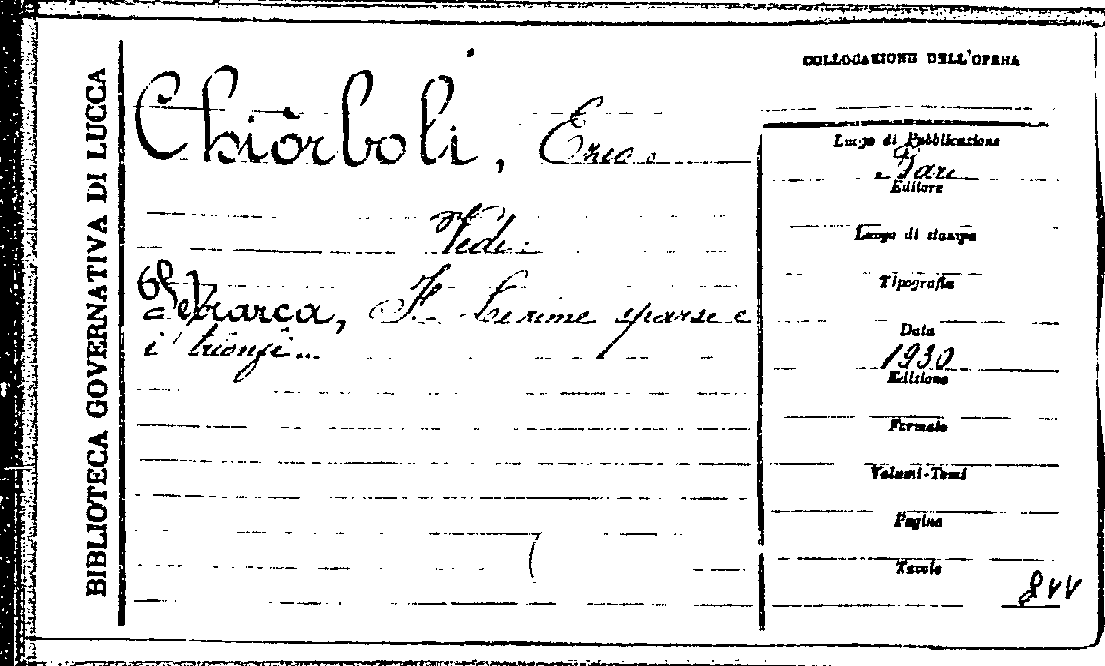 BIBLIOTECA GOVERNATIVA DI LUCCA
Chiòrboli, Ezio.
Vedi:
Petrarca, F. Le rime sparse e
i trionfi...
COLLOCAZIONE DELL'OPERA
Luogo di Pubblicazione
Bari
Editore
Luogo di stampa
Tipografia
Data
1930
Edizione
Formato
Volumi-Tomi
Pagine
Tavole